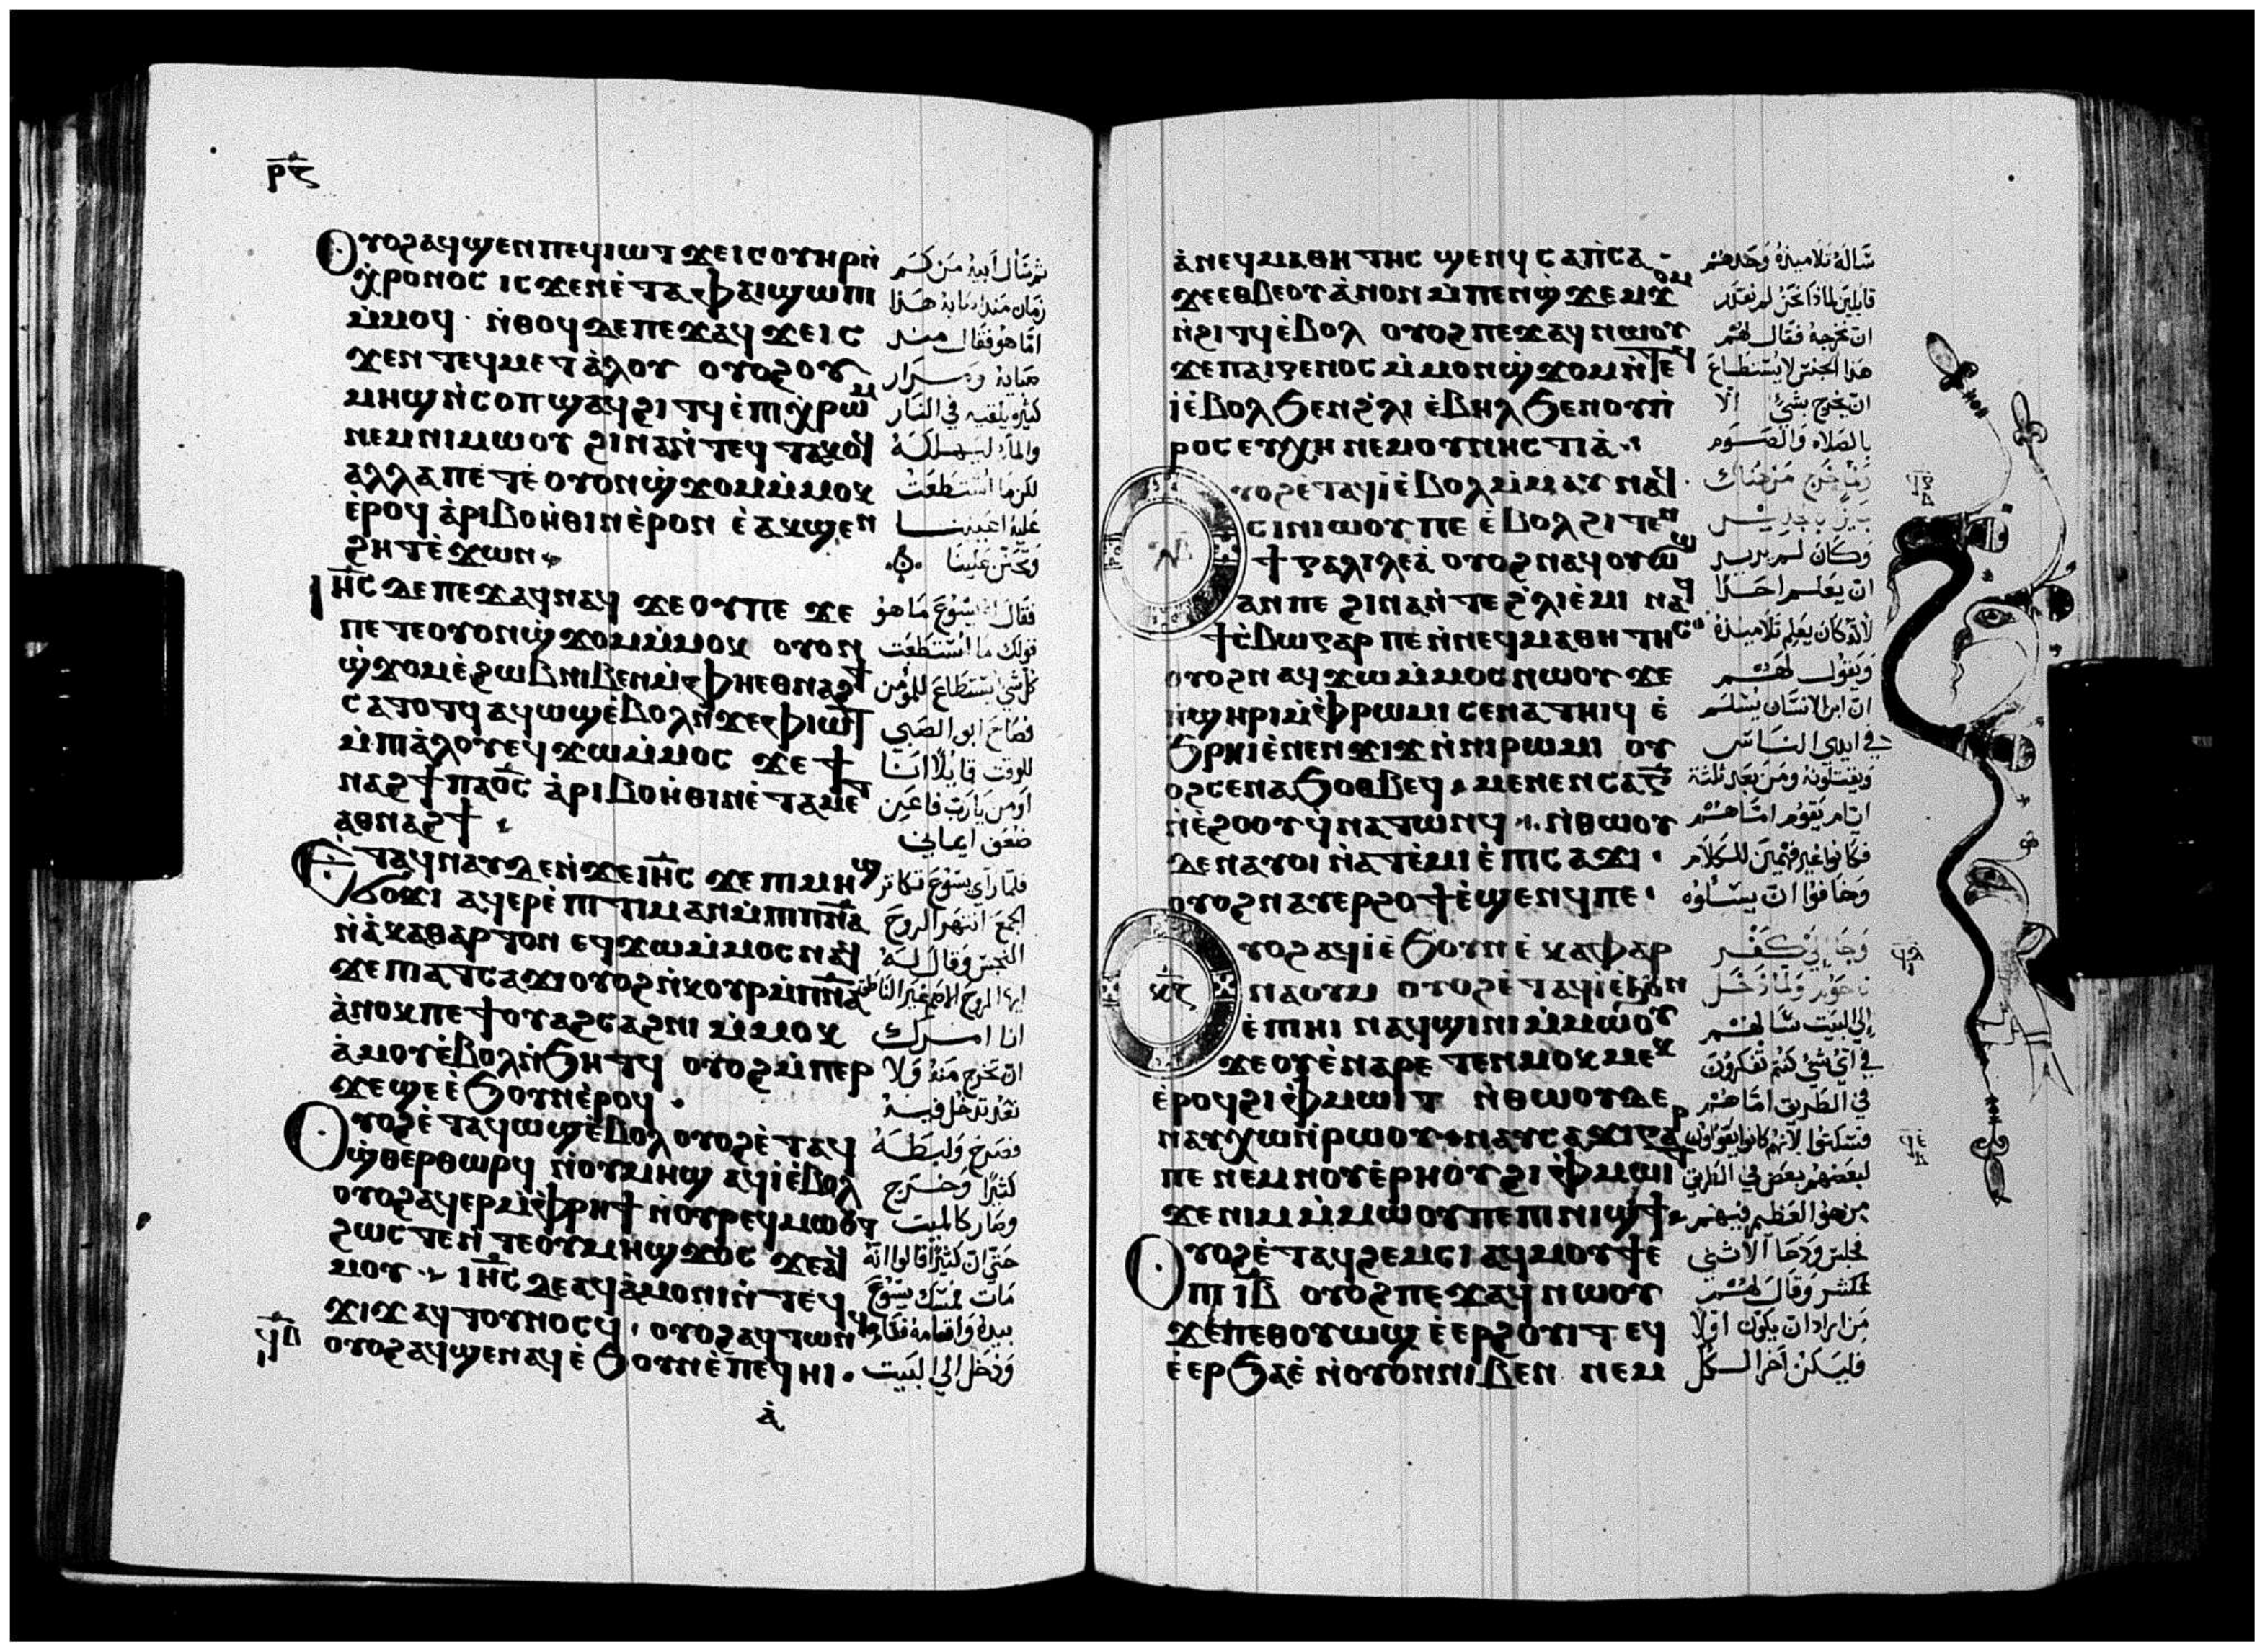 ⲣ̅ⲋ̅
Ⲟⲩⲟϩ ⲁϥϣⲉⲛ ⲡⲉϥⲓⲱⲧ ϫⲉ ⲓⲥ ⲟⲩⲏⲣ ⲛ̀
ⲭ̀ⲣⲟⲛⲟⲥ ⲓⲥϫⲉⲛ ⲉ̀ⲧⲁ ⲫⲁⲓ ϣⲱⲡⲓ
ⲙ̀ⲙⲟϥ · ⲛ̀ⲑⲟϥ ⲇⲉ ⲡⲉϫⲁϥ ϫⲉ ⲓⲥ
ϫⲉⲛ ⲧⲉϥⲙⲉⲧⲁ̀ⲗⲟⲩ ⲟⲩⲟϩ ⲟⲩ
ⲙⲏϣ ⲛ̀ⲥⲟⲡ ϣⲁϥϩⲓⲧϥ ⲉ̀ⲡⲓⲭ̀ⲣⲱⲙ
ⲛⲉⲙ ⲛⲓⲙⲱⲟⲩ ϩⲓⲛⲁ ⲛ̀ⲧⲉϥⲧⲁⲕⲟϥ
ⲁⲗⲗⲁ ⲡⲉⲧⲉ ⲟⲩⲟⲛϣ̀ϫⲟⲙ ⲙ̀ⲙⲟⲕ
ⲉ̀ⲣⲟϥ ⲁ̀ⲣⲓⲃⲟⲏ̀ⲑⲓⲛ ⲉ̀ⲣⲟⲛ ⲉ̀ⲁⲕϣⲉⲛ
ϩⲏⲧ ⲉ̀ϫⲱⲛ
Ⲓⲏ̅ⲥ̅ ⲇⲉ ⲡⲉϫⲁϥ ⲛⲁϥ ϫⲉ ⲟⲩ ⲡⲉ ϫⲉ
ⲡⲉⲧⲉ ⲟⲩⲟⲛϣ̀ϫⲟⲙ ⲙ̀ⲙⲟⲕ ⲟⲩⲟⲛ
ϣ̀ϫⲟⲙ ⲉ̀ϩⲱⲃ ⲛⲓⲃⲉⲛ ⲙ̀ⲫⲏⲉⲑⲛⲁϩϯ
ⲥⲁⲧⲟⲧϥ ⲁϥⲱϣ ⲉ̀ⲃⲟⲗ ⲛ̀ϫⲉ ⲫ̀ⲓⲱⲧ
ⲙ̀ⲡⲓⲁ̀ⲗⲟⲩ ⲉϥϫⲱ ⲙ̀ⲙⲟⲥ ϫⲉ ϯ
ⲛⲁϩϯ ⲡⲁⲟ̅ⲥ̅ ⲁ̀ⲣⲓⲃⲟⲏ̀ⲑⲓⲛ ⲉ̀ⲧⲁⲙⲉⲧ
ⲁⲑⲛⲁϩϯ
Ⲉ̀ⲧⲁϥⲛⲁⲩ ⲇⲉ ⲛ̀ϫⲉ ⲓⲏ̅ⲥ̅ ϫⲉ ⲡⲓⲙⲏϣ
ϭⲟϫⲓ ⲁϥⲉⲣⲉ̀ⲡⲓⲧⲓⲙⲁⲛ ⲙ̀ⲡⲓⲡ̅ⲛ̅ⲁ̅
ⲛ̀ⲁ̀ⲕⲁⲑⲁⲣⲧⲟⲛ ⲉϥϫⲱ ⲙ̀ⲙⲟⲥ ⲛⲁϥ
ϫⲉ ⲡⲓⲁⲧⲥⲁϫⲓ ⲟⲩⲟϩ ⲛ̀ⲕⲟⲩⲣ ⲙ̀ⲡ̅ⲛ̅ⲁ̅
ⲁ̀ⲛⲟⲕ ⲡⲉϯⲟⲩⲁϩⲥⲁϩⲛⲓ ⲙ̀ⲙⲟⲕ
ⲁ̀ⲙⲟⲩ ⲉ̀ⲃⲟⲗ ⲛ̀ϧⲏⲧϥ ⲟⲩⲟϩ ⲙ̀ⲡⲉⲣ
ϫⲉ ϣⲉ ⲉ̀ϧⲟⲩⲛ ⲉ̀ⲣⲟϥ ·
Ⲟⲩⲟϩ ⲉ̀ⲧⲁϥⲱϣ ⲉ̀ⲃⲟⲗ ⲟⲩⲟϩ ⲉ̀ⲧⲁϥ
ϣ̀ⲑⲉⲣⲑⲱⲣϥ ⲛ̀ⲟⲩⲙⲏϣ ⲁϥⲓ̀ ⲉ̀ⲃⲟⲗ
ⲟⲩⲟϩ ⲁϥⲉⲣ ⲙ̀ⲫ̀ⲣⲏϯ ⲛ̀ⲟⲩⲣⲉϥⲙⲱⲟⲩⲧ
ϩⲱⲥ ⲧⲉ ⲛ̀ⲧⲉ ⲟⲩⲙⲏϣ ϫⲟⲥ ϫⲉ ⲁϥ
ⲙⲟⲩ · ⲓⲏ̅ⲥ̅ ⲇⲉ ⲁϥⲁ̀ⲙⲟⲛⲓ ⲛ̀ⲧⲉϥ
ϫⲓϫ ⲁϥⲧⲟⲩⲛⲟⲥϥ · ⲟⲩⲟϩ ⲁϥⲧⲱⲛϥ
ⲟⲩⲟϩ ⲁϥϣⲉⲛⲁϥ ⲉ̀ϧⲟⲩⲛ ⲉ̀ⲡⲉϥⲏⲓ ·
ثم سأل ابيه من كم
زمان منذ اصابه هذا
اما هو فقال منذ
صبايه ومرار
كثيره يلقيه في النار
والماء ليهلكه
لكن ما استطعت
عليه اعيننا
وتحنن علينا
فقال له يسوع ما هو
قولك ما استطعت
كل شي يستطاع للمؤمن
فصاح ابو الصبي
للوقت قايلا انا
اومن يا رب فاعين
ضعف ايماني
فلما راى يسوع تكاثر
الجمع انتهر الروح
النجس وقال له
ايها الروح الاصم غير الناطق
انا امرك
ان تخرج منه ولا
تعد تدخل فيه
فصرخ ولبطه
كثيرا وخرج
وصار كالميت
حتى ان كثيرا قالوا انه
مات فمسك يسوع
بيده واقامه فقام
ودخل الى البيت
ⲁ̀
ⲁ̀ ⲛⲉϥⲙⲁⲑⲏⲧⲏⲥ ϣⲉⲛϥ ⲥⲁⲡ̀ⲥⲁ
ϫⲉ ⲉⲑⲃⲉ ⲟⲩ ⲁ̀ⲛⲟⲛ ⲙ̀ⲡⲉⲛϣ̀ϫⲉⲙϫⲟⲙ
ⲛ̀ϩⲓⲧϥ ⲉ̀ⲃⲟⲗ ⲟⲩⲟϩ ⲡⲉϫⲁϥ ⲛⲱⲟⲩ
ϫⲉ ⲡⲁⲓⲅⲉⲛⲟⲥ ⲙ̀ⲙⲟⲛϣ̀ϫⲟⲙ ⲛ̀ⲧⲉϥ
ⲓ̀ ⲉ̀ⲃⲟⲗ ϧⲉⲛ ϩ̀ⲗⲓ ⲉ̀ⲃⲏⲗ ϧⲉⲛ ⲟⲩⲡ̀
ⲣⲟⲥⲉⲩⲭⲏ ⲛⲉⲙ ⲟⲩⲛⲏⲥⲧⲓⲁ̀
ⲩⲟϩ ⲉ̀ⲧⲁϥⲓ̀ ⲉ̀ⲃⲟⲗ ⲙ̀ⲙⲁⲩ ⲛⲁϥ
ⲥⲓⲛⲓⲱⲟⲩ ⲡⲉ ⲉ̀ⲃⲟⲗ ϩⲓⲧⲉⲛ
ϯⲅⲁⲗⲓⲗⲉⲁ̀ ⲟⲩⲟϩ ⲛⲁϥⲟⲩⲱϣ
ⲁⲛ ⲡⲉ ϩⲓⲛⲁ ⲛ̀ⲧⲉ ϩ̀ⲗⲓ ⲉ̀ⲙⲓ ⲛⲁϥ
ϯⲥ̀ⲃⲱ ⲅⲁⲣ ⲡⲉ ⲛ̀ⲛⲉϥⲙⲁⲑⲏⲧⲏⲥ
ⲟⲩⲟϩ ⲛⲁϥϫⲱ ⲙ̀ⲙⲟⲥ ⲛⲱⲟⲩ ϫⲉ
ⲡ̀ϣⲏⲣⲓ ⲙ̀ⲫ̀ⲣⲱⲙⲓ ⲥⲉⲛⲁⲧⲏⲓϥ ⲉ̀
ϧ̀ⲣⲏⲓ ⲉ̀ⲛⲉⲛϫⲓϫ ⲛ̀ⲛⲓⲣⲱⲙⲓ ⲟⲩ
ⲟϩ ⲥⲉⲛⲁϧⲟⲑⲃⲉϥ ⲙⲉⲛⲉⲛⲥⲁ ⲅ̅
ⲛ̀ⲉ̀ϩⲟⲟⲩ ϥ̀ⲛⲁⲧⲱⲛϥ ⲛ̀ⲑⲱⲟⲩ
ⲇⲉ ⲛⲁⲩⲟⲓ ⲛ̀ⲁⲧⲉ̀ⲙⲓ ⲉ̀ⲡⲓⲥⲁϫⲓ ·
ⲟⲩⲟϩ ⲛⲁⲩⲉⲣϩⲟϯ ⲉ̀ϣⲉⲛϥ ⲡⲉ ·
ⲩⲟϩ ⲁϥⲓ̀ ⲉ̀ϧⲟⲩⲛ ⲉ̀ⲕⲁⲫⲁⲣ
ⲛⲁⲟⲩⲙ ⲟⲩⲟϩ ⲉ̀ⲧⲁϥⲓ̀ ⲉ̀ϧⲟⲩⲛ
ⲉ̀ⲡⲓⲏⲓ ⲛⲁϥϣⲓⲛⲓ ⲙ̀ⲙⲱⲟⲩ
ϫⲉ ⲟⲩ ⲉ̀ⲛⲁⲣⲉⲧⲉⲛⲙⲟⲕⲙⲉⲕ
ⲉ̀ⲣⲟϥ ϩⲓ ⲫ̀ⲙⲱⲓⲧ ⲛ̀ⲑⲱⲟⲩ ⲇⲉ
ⲛⲁⲩⲭⲱ ⲛ̀ⲣⲱⲟⲩ ⲛⲁⲩⲥⲁϫⲓ ⲅⲁⲣ
ⲡⲉ ⲛⲉⲙ ⲛⲟⲩⲉ̀ⲣⲏⲟⲩ ϩⲓ ⲫ̀ⲙⲱⲓⲧ
ϫⲉ ⲛⲓⲙ ⲙ̀ⲙⲱⲟⲩ ⲡⲉ ⲡⲓⲛⲓϣϯ
Ⲟⲩⲟϩ ⲉ̀ⲧⲁϥϩⲉⲙⲥⲓ ⲁϥⲙⲟⲩϯ ⲉ̀
ⲡⲓⲓ̅ⲃ̅ ⲟⲩⲟϩ ⲡⲉϫⲁϥ ⲛⲱⲟⲩ
ϫⲉ ⲡⲉⲑⲟⲩⲱϣ ⲉ̀ⲉⲣϩⲟⲩⲓⲧ ⲉϥ
ⲉ̀ⲉⲣϧⲁⲉ̀ ⲛ̀ⲟⲩⲟⲛ ⲛⲓⲃⲉⲛ ⲛⲉⲙ
ساله تلاميذه وحدهم
قايلين لماذا نحن لم نقدر
ان نخرجه فقال لهم
هذا الجنس لا يستطاع
ان يخرج بشي الا
بالصلاه والصوم
ولما خرج من هناك
وكان لم يريد
ان يعلم احدا
لانه كان يعلم تلاميذه
ويقول لهم
ان ابن الانسان يسلم
في ايدي الناس
ويقتلونه ومن بعد ثلثة
ايام يقوم اما هم
فكانوا غير فهمين للكلام
وخافوا ان يسئلوه
وجا إلى كفر
ناحوم ولما دخل
إلى البيت سالهم
في اي شي كنتم تفكرون
في الطريق اما هم
فسكتوا لانهم كانوا يقولون
لبعضهم بعض في الطريق
من هو العظيم فيهم
فجلس ودعا الاثني
عشر وقال لهم
من اراد ان يكون اولا
فليكن اخر الكل